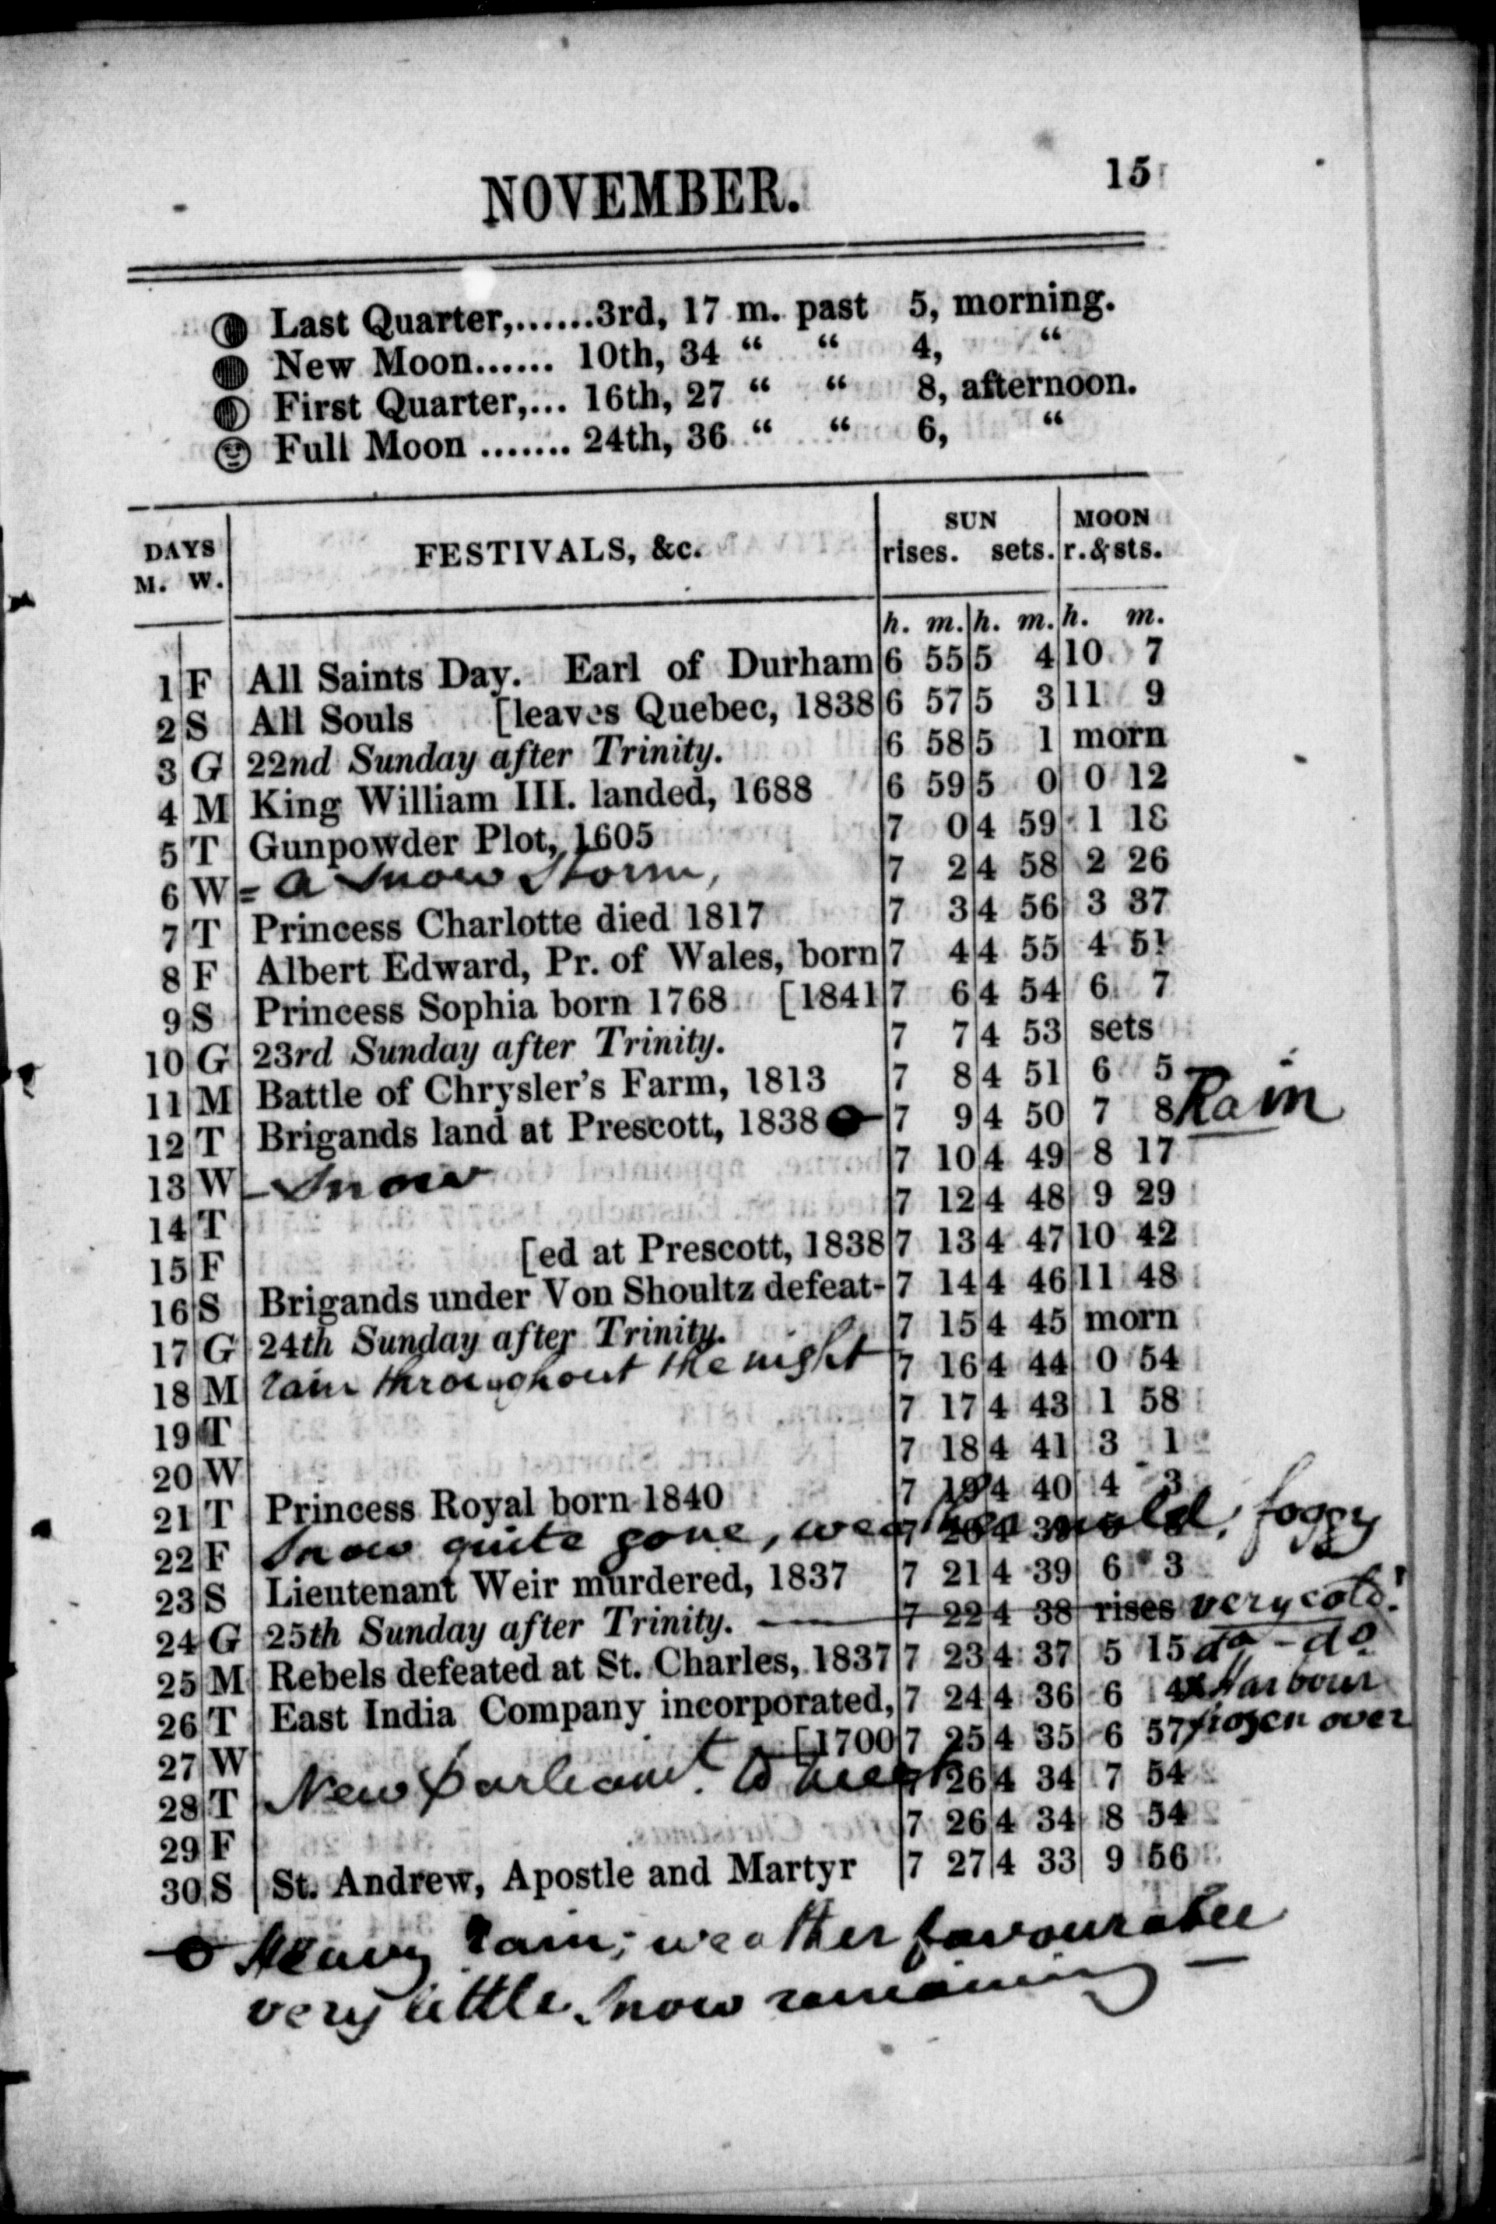 15
NOVEMBER.
Last Quarter,......3rd, 17 m. past 5, morning.
New Moon...... 10th, 34 “ “ 4, “
First Quarter,... 16th, 27 “ “ 8, afternoon.
Full Moon ....... 24th, 36 “ “ 6, “
DAYS M. W. FESTIVALS, &c. SUN rises. sets. MOON r. & sts.
h. m. h. m. h. m.
1 F All Saints Day. Earl of Durham 6 55 5 4 10 7
2 S All Souls [leaves Quebec, 1838 6 57 5 3 11 9
3 G 22nd Sunday after Trinity. 6 58 5 1 morn
4 M King William III. landed, 1688 6 59 5 0 0 12
5 T Gunpowder Plot, 1605 7 0 4 59 1 18
6 W = a Snow Storm, 7 2 4 58 2 26
7 T Princess Charlotte died 1817 7 3 4 56 3 37
8 F Albert Edward, Pr. of Wales, born 7 4 4 55 4 51
9 S Princess Sophia born 1768 [1841 7 6 4 54 6 7
10 G 23rd Sunday after Trinity. 7 7 4 53 sets
11 M Battle of Chrysler's Farm, 1813 7 8 4 51 6 5
12 T Brigands land at Prescott, 1838 7 9 4 50 7 8 Rain
13 W - Snow 7 10 4 49 8 17
14 T 7 12 4 48 9 29
15 F [ed at Prescott, 1838 7 13 4 47 10 42
16 S Brigands under Von Shoultz defeat- 7 14 4 46 11 48
17 G 24th Sunday after Trinity. 7 15 4 45 morn
18 M rain throughout the night 7 16 4 44 0 54
19 T 7 17 4 43 1 58
20 W 7 18 4 41 3 1
21 T Princess Royal born 1840 7 19 4 40 4 3
22 F Snow quite gone, weather mild, foggy 7 20 4 39
23 S Lieutenant Weir murdered, 1837 7 21 4 39 6 3
24 G 25th Sunday after Trinity. — 7 22 4 38 rises very cold!
25 M Rebels defeated at St. Charles, 1837 7 23 4 37 5 15 do - do
26 T East India Company incorporated, 7 24 4 36 6 Harbour
27 W [1700 7 25 4 35 6 57 frozen over
28 T New Parliamt. to meet 7 26 4 34 7 54
29 F 7 26 4 34 8 54
30 S St. Andrew, Apostle and Martyr 7 27 4 33 9 56
Heavy rain; weather favourable
very little Snow remaining —